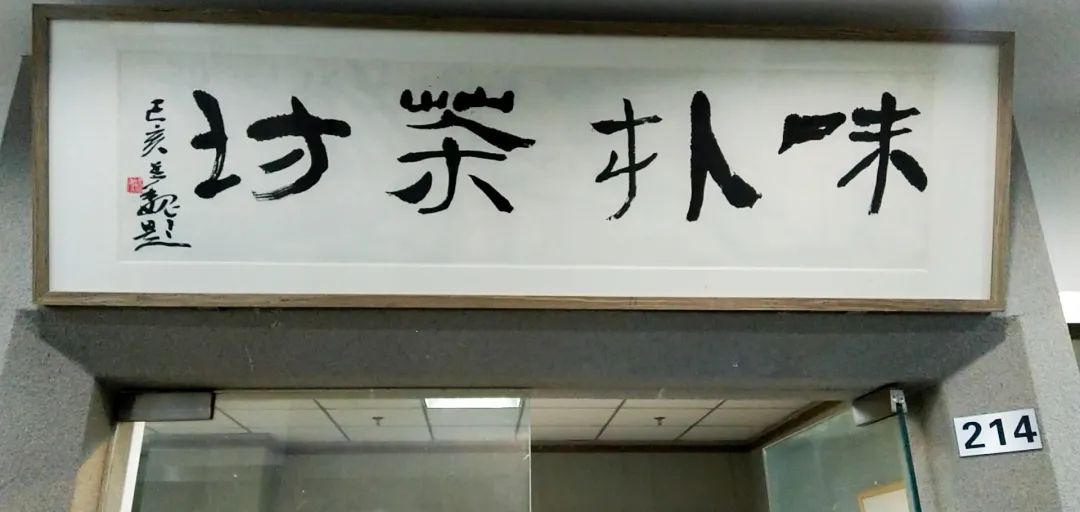 味朴茶坊
己亥魏题
214